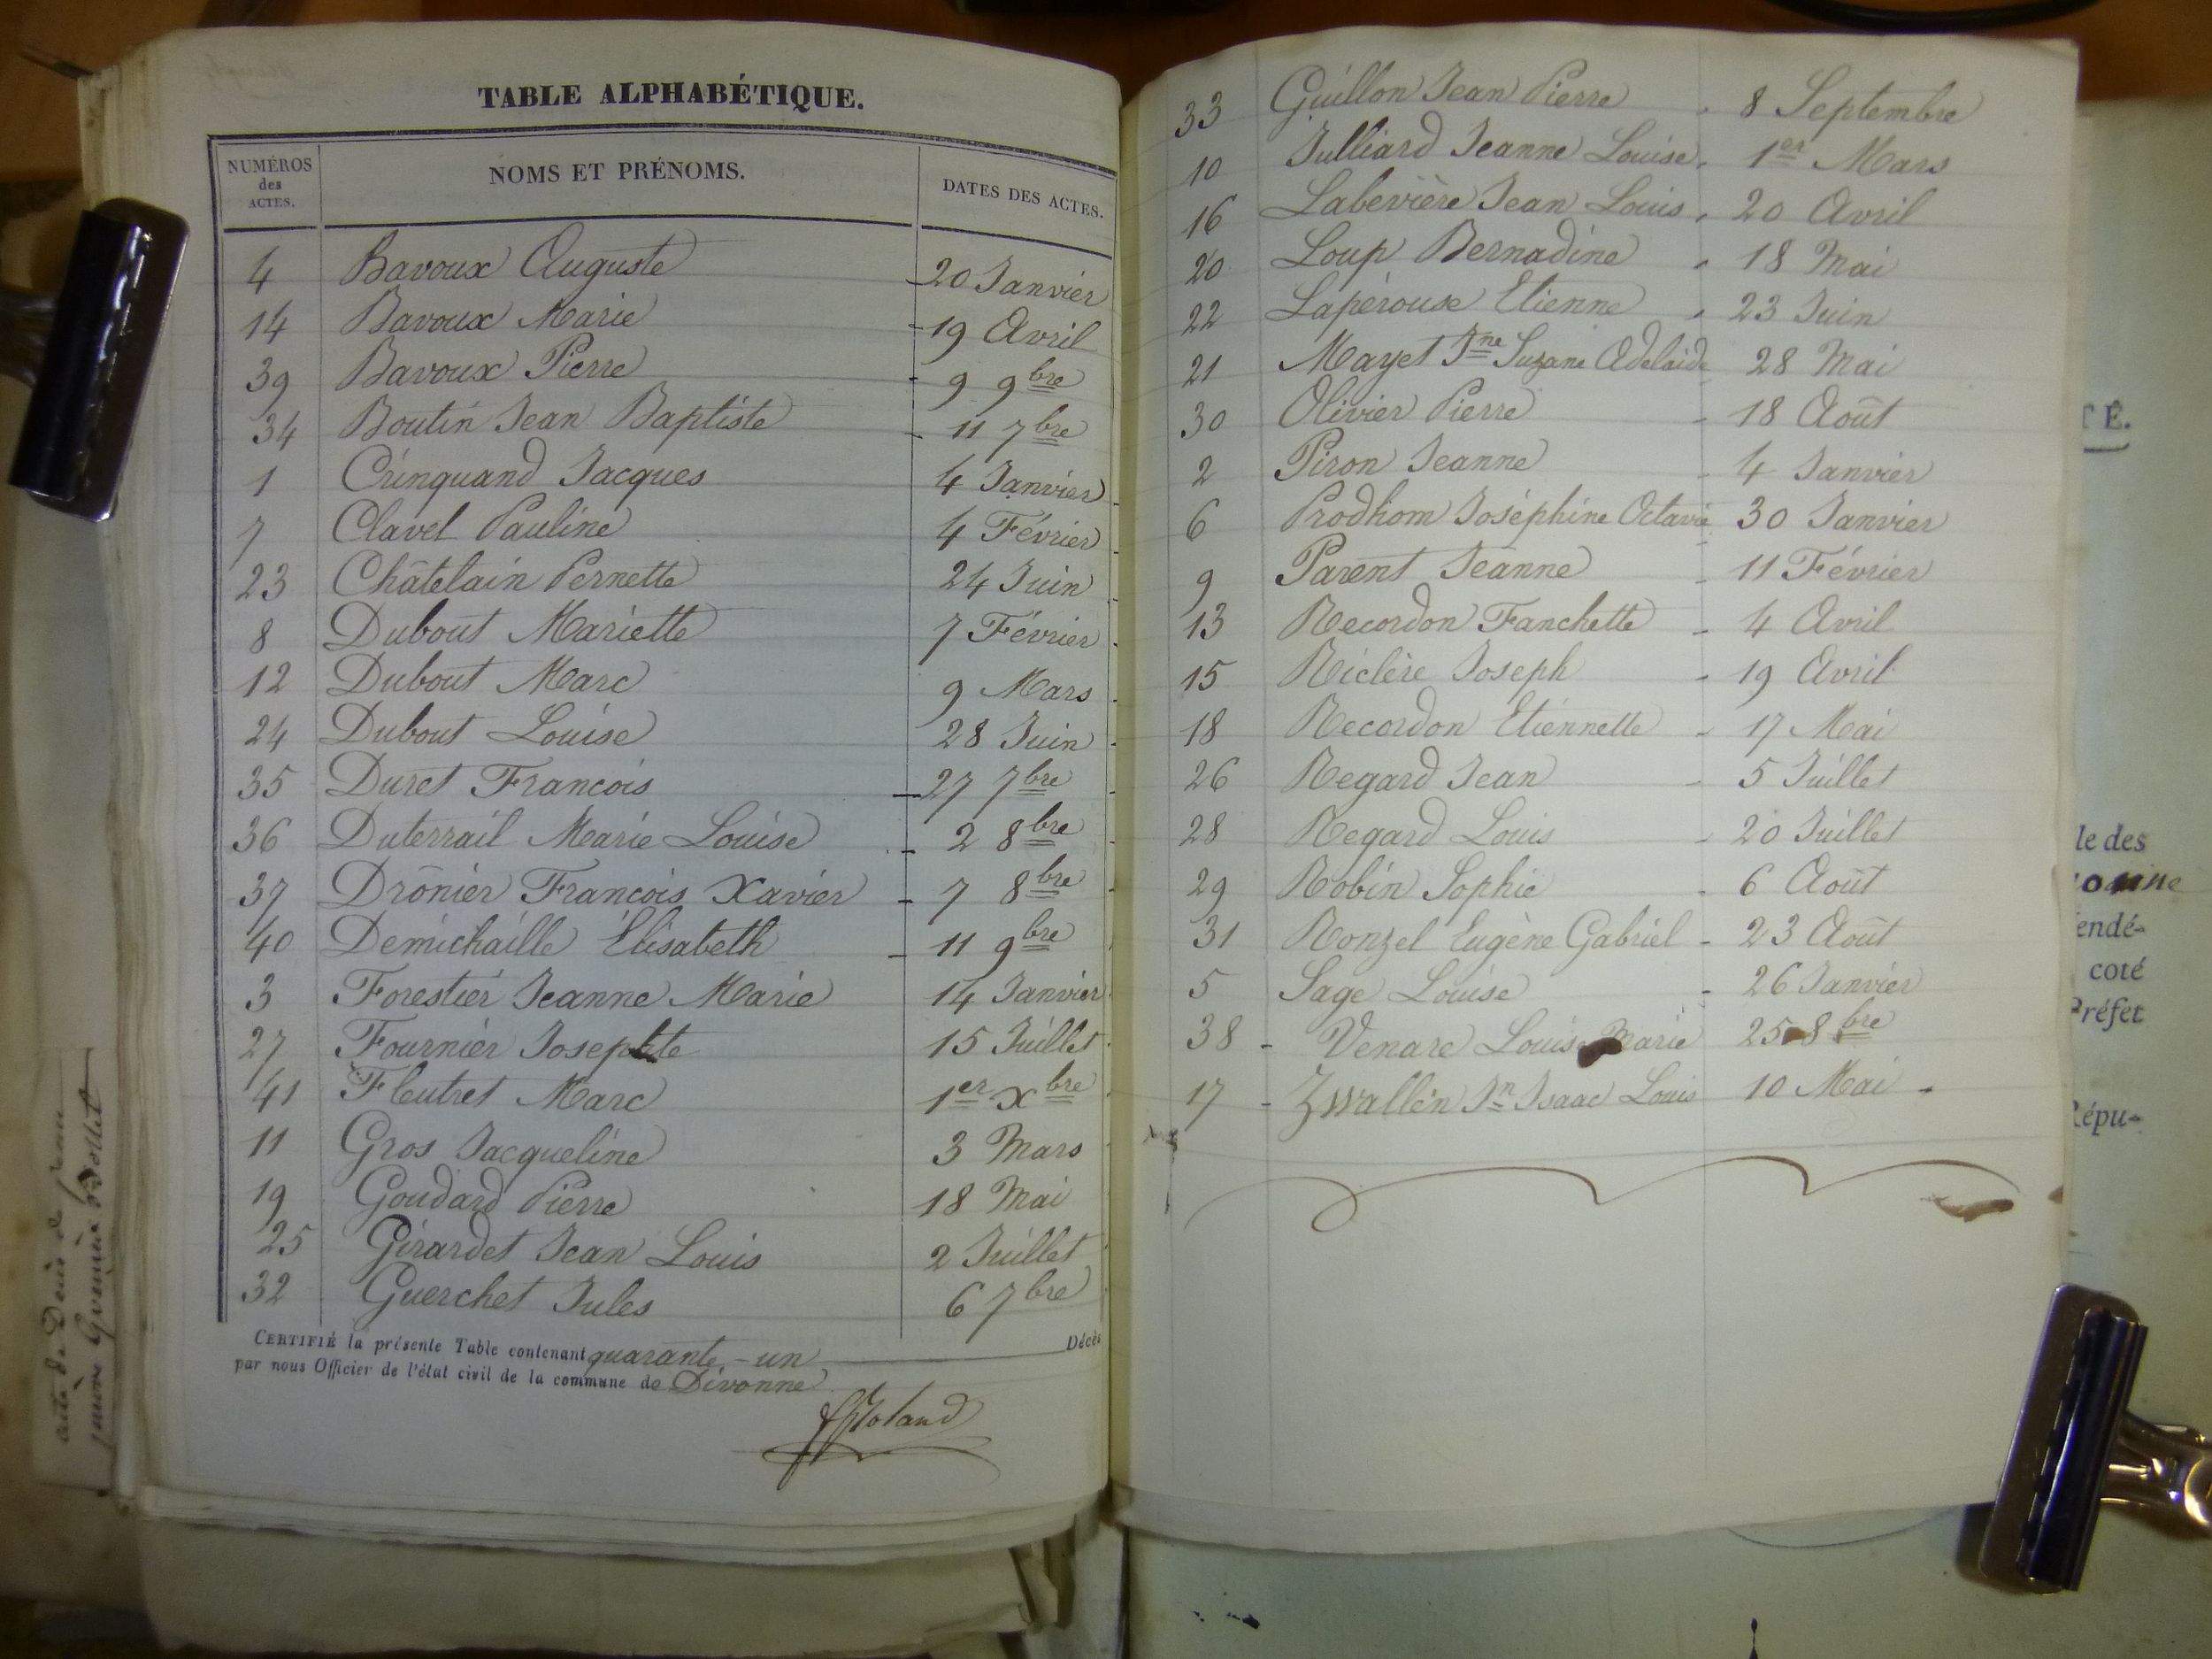 TABLE ALPHABÉTIQUE.
NUMÉROS des ACTES. NOMS ET PRÉNOMS. DATES DES ACTES.
4 Bavoux Auguste 20 Janvier
14 Bavoux Marie - 19 Avril
39 Bavoux Pierre - 9 9bre
34 Boutin Jean Baptiste - 11 7bre
1 Crinquand Jacques 4 Janvier
7 Clavel Pauline 4 Février
23 Châtelain Pernette 24 Juin
8 Dubout Mariette 7 Février
12 Dubout Marc 9 Mars
24 Dubout Louise 28 Juin
35 Duret Francois - 27 7bre
36 Duterrail Marie Louise - 2 8bre
37 Dronier Francois Xavier - 7 8bre
40 Demichaille Élisabeth - 11 9bre
3 Forestier Jeanne Marie 14 Janvier
27 Fournier Josephte 15 Juillet
41 Fleutret Marc 1er Xbre
11 Gros Jacqueline 3 Mars
19 Goudard Pierre 18 Mai
25 Girardet Jean Louis 2 Juillet
32 Guerchet Jules 6 7bre
CERTIFIÉ la présente Table contenant quarante-un Décès
par nous Officier de l'état civil de la commune de Divonne
33 Guillon Jean Pierre - 8 Septembre
10 Julliard Jeanne Louise - 1er Mars
16 Labévière Jean Louis - 20 Avril
20 Loup Bernadine - 18 Mai
22 Lapérouse Etienne - 23 Juin
21 Mayet Jne Suzane Adelaide 28 Mai
30 Olivier Pierre - 18 Août
2 Piron Jeanne - 4 Janvier
6 Prodhom Joséphine Octavie 30 Janvier
9 Parent Jeanne - 11 Février
13 Recordon Fanchette - 4 Avril
15 Riclère Joseph - 19 Avril
18 Recordon Etiennette - 17 Mai
26 Regard Jean - 5 Juillet
28 Regard Louis - 20 Juillet
29 Robin Sophie - 6 Août
31 Ronzel Eugène Gabriel - 23 Août
5 Sage Louise - 26 Janvier
38 - Venare Louise Marie 25 8bre
17 - Zwallen Jn Isaac Louis 10 Mai -
TÉ.
le des
endé-
coté
Préfet
Répu-
acte de Décès de